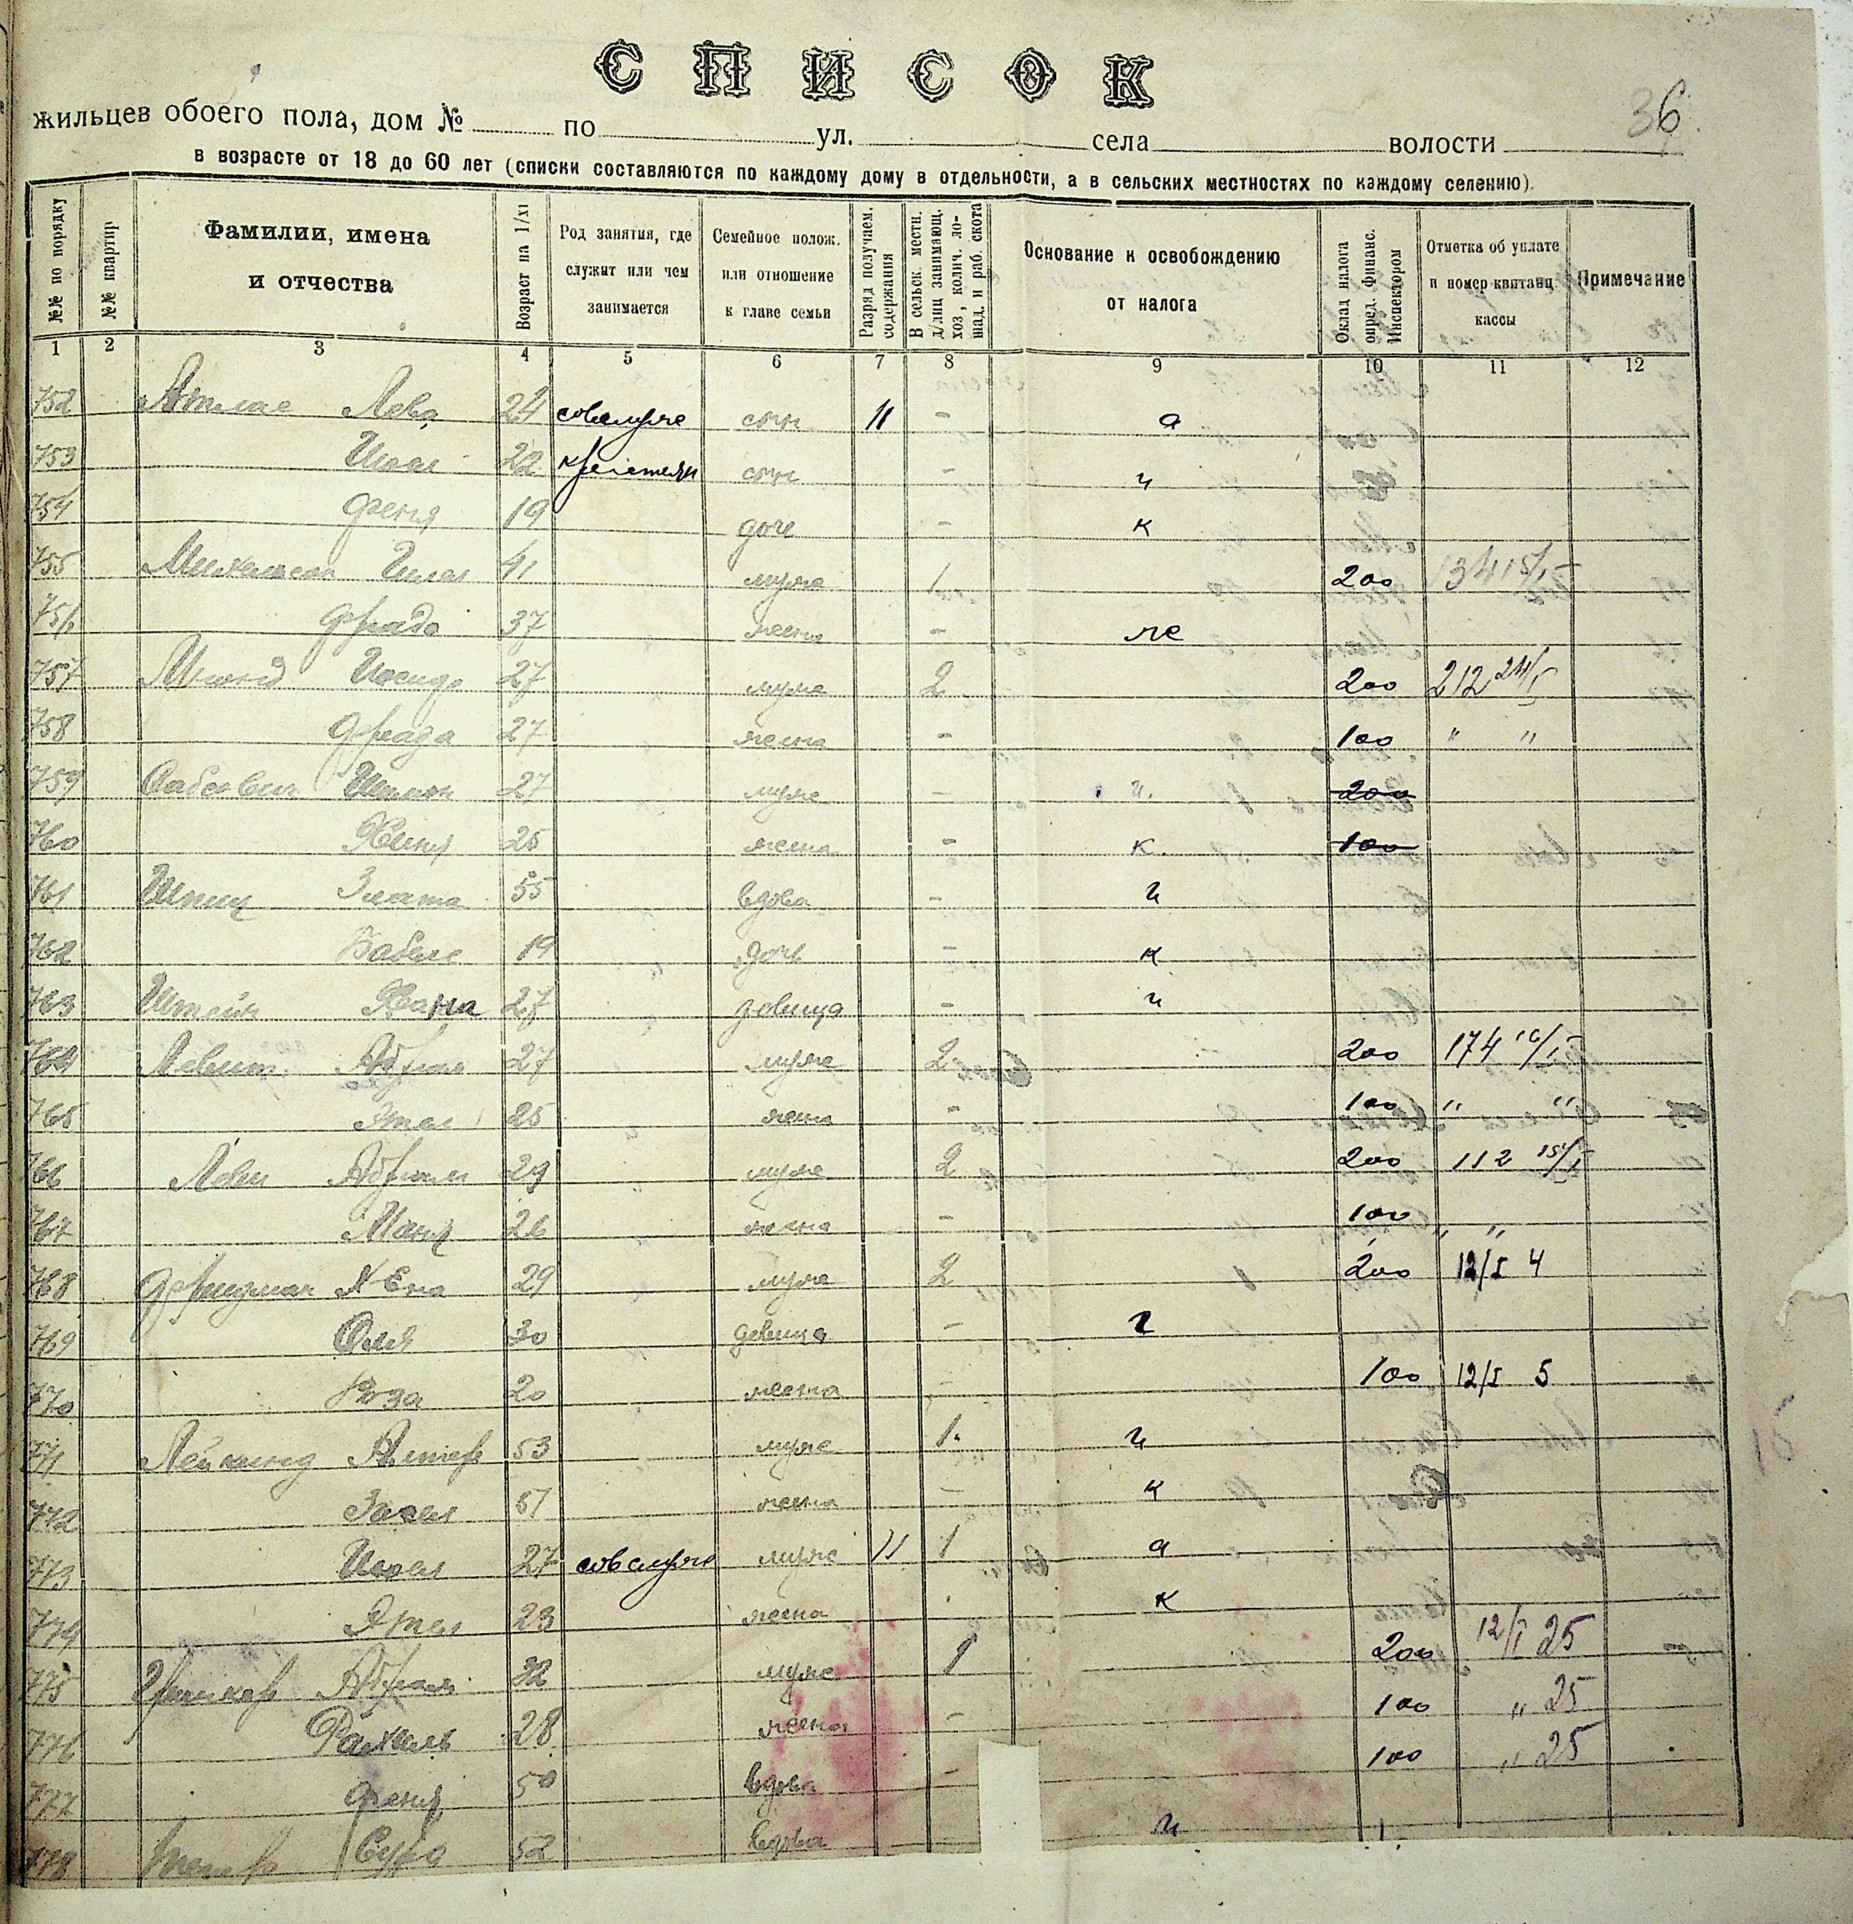 СПИСОК
36
жильцев обоего пола, дом № по ул. села волости
в возрасте от 18 до 60 лет (списки составляются по каждому дому в отдельности, а в сельских местностях по каждому селению).
№№ по порядку
№№ квартир
Фамилии, имена
и отчества
Возраст на 1/XI
Род занятия, где
служит или чем
занимается
Семейное полож.
или отношение
к главе семьи
Разряд получаем.
содержания
В сельск. местн.
д/лиц занимающ.
хоз, колич. ло-
шад. и раб. скота
Основание к освобождению
от налога
Оклад налога
опред. финанс.
Инспектором
Отметка об уплате
и номер квитанц.
кассы
Примечание
1 2 3 4 5 6 7 8 9 10 11 12
752 Лева 24 совслуж сын 11 - а
753 22 крестьян сын - и
754 Феня 19 дочь - к
755 Михельсон 41 муж 1 200 134 15/I
756 Фрада 37 жена - же
757 27 муж 2 200 212 24/I
758 Фрада 27 жена - 100 " "
759 27 муж - и. 200
760 Хеня 25 жена - к. 100
761 Злата 55 вдова - и
762 19 дочь - к
763 Штейн Хана 27 девица - и
764 Левит Абрам 27 муж 2 200 174 16/I
765 Этел 25 жена - 100 " "
766 Леви Абрам 29 муж 2 200 112 15/I
767 Маня 26 жена - 100 " "
768 29 муж 2 200 12/I 4
769 Оля 30 девица - г
770 Роза 20 жена - 100 12/I 5
771 53 муж 1. и
772 51 жена - к
773 27 совслуж муж 11 1 а
774 Этел 23 жена к
775 Абрам 32 муж 1 200 12/I 25
776 Рахиль 28 жена - 100 " 25
777 Феня 50 вдова - 100 " 25
778 Сура 52 вдова и